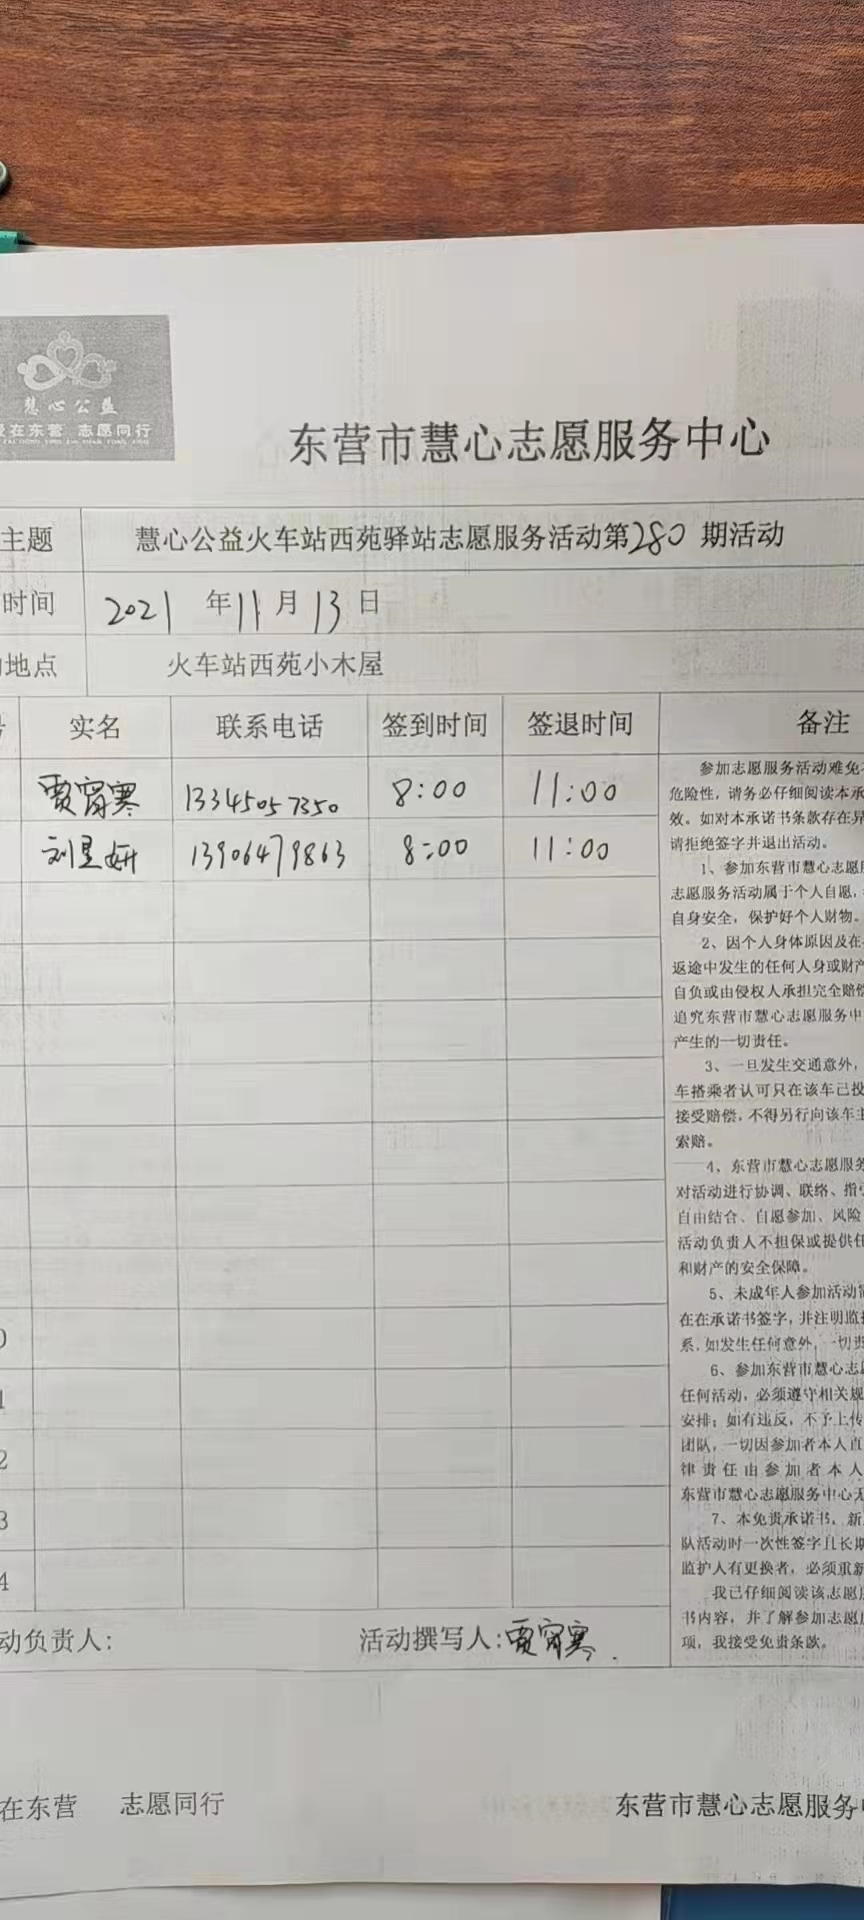 慧心公益
爱在东营 志愿同行
东营市慧心志愿服务中心
主题 慧心公益火车站西苑驿站志愿服务活动第280期活动
时间 2021年11月13日
地点 火车站西苑小木屋
实名 联系电话 签到时间 签退时间 备注
贾宵寒 13345057350 8:00 11:00
刘星妍 13906479863 8:00 11:00
参加志愿服务活动难免
危险性，请务必仔细阅读本承
效。如对本承诺书条款存在异
请拒绝签字并退出活动。
1、参加东营市慧心志愿
志愿服务活动属于个人自愿，
自身安全，保护好个人财物。
2、因个人身体原因及在
返途中发生的任何人身或财产
自负或由侵权人承担完全赔偿
追究东营市慧心志愿服务中
产生的一切责任。
3、一旦发生交通意外，
车搭乘者认可只在该车已投
接受赔偿，不得另行向该车主
索赔。
4、东营市慧心志愿服务
对活动进行协调、联络、指
自由结合、自愿参加、风险
活动负责人不担保或提供任
和财产的安全保障。
5、未成年人参加活动
在在承诺书签字，并注明监
系，如发生任何意外，一切责
6、参加东营市慧心志愿
任何活动，必须遵守相关规
安排；如有违反，不予上传
团队，一切因参加者本人直
律责任由参加者本人
东营市慧心志愿服务中心无
7、本免责承诺书，新
队活动时一次性签字且长期
监护人有更换者，必须重新
我已仔细阅读该志愿
书内容，并了解参加志愿
项，我接受免责条款。
0
1
2
3
4
动负责人: 活动撰写人:贾宵寒.
在东营 志愿同行 东营市慧心志愿服务中